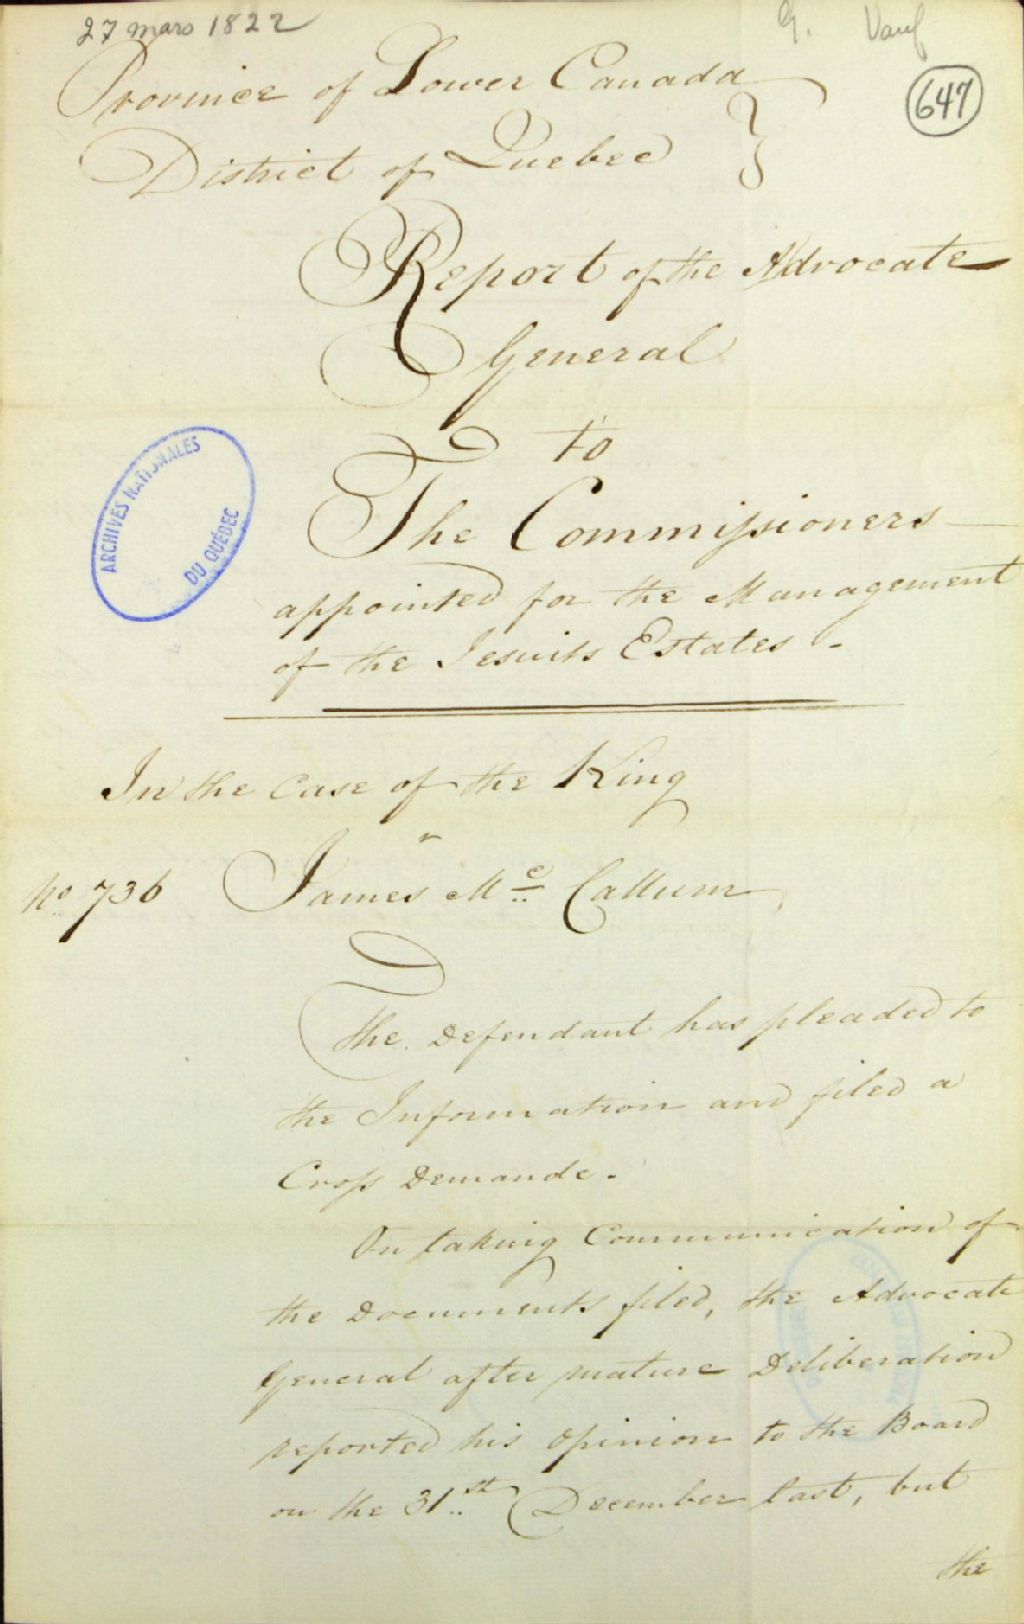 27 mars 1822
G. Vauf
647
Province of Lower Canada
District of Quebec }
Report of the Advocate
General
to
The Commissioners
appointed for the Management
of the Jesuits Estates -
ARCHIVES NATIONALES
DU QUÉBEC
In the Case of the King
v
No. 736 James Mc Callum
The Defendant has pleaded to
the Information and filed a
Cross Demande.
On taking Communication of
the Documents filed, the Advocate
General after mature Deliberation
reported his Opinion to the Board
on the 31st December last, but
the